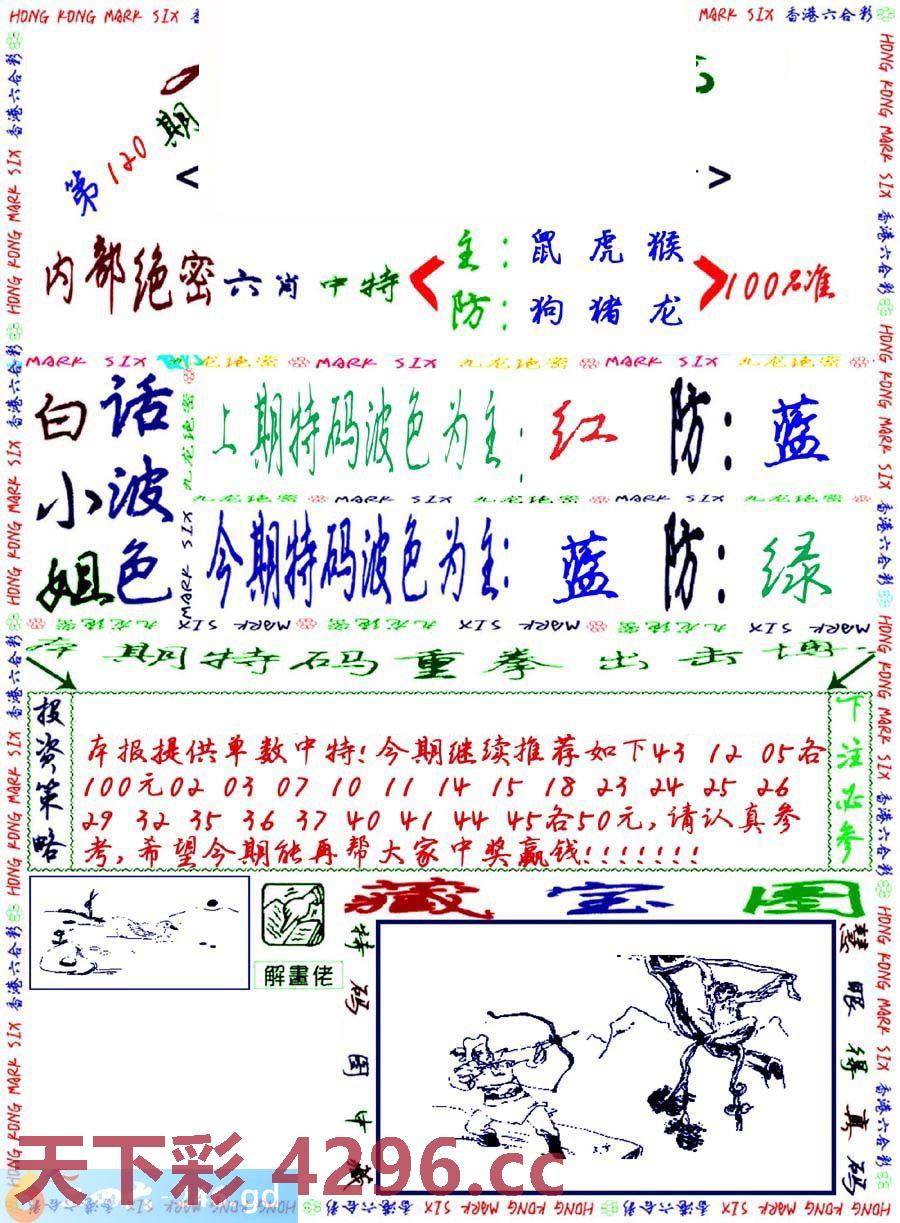 HONG KONG MARK SIX
MARK SIX 香港六合彩
第120期
< >
内部绝密六肖中特
主：鼠虎猴
防：狗猪龙
100%准
MARK SIX 九龙绝密 MARK SIX 九龙绝密 MARK SIX 九龙绝密
白话小波姐色
上期特码波色为主：红 防：蓝
九龙绝密 MARK SIX 九龙绝密 MARK SIX 九龙绝密
今期特码波色为主：蓝 防：绿
九龙绝密 MARK SIX 九龙绝密 MARK SIX 九龙绝密 MARK SIX
期特码重拳出击
投资策略
本报提供单数中特!今期继续推荐如下43 12 05各
100元02 03 07 10 11 14 15 18 23 24 25 26
29 32 35 36 37 40 41 44 45各50元,请认真参
考,希望今期能再帮大家中奖赢钱!!!!!!!
下注必参
藏宝图
解畫佬
特码图中藏
慧眼得真码
天下彩 4296.cc
gd
HONG KONG MARK SIX 香港六合彩